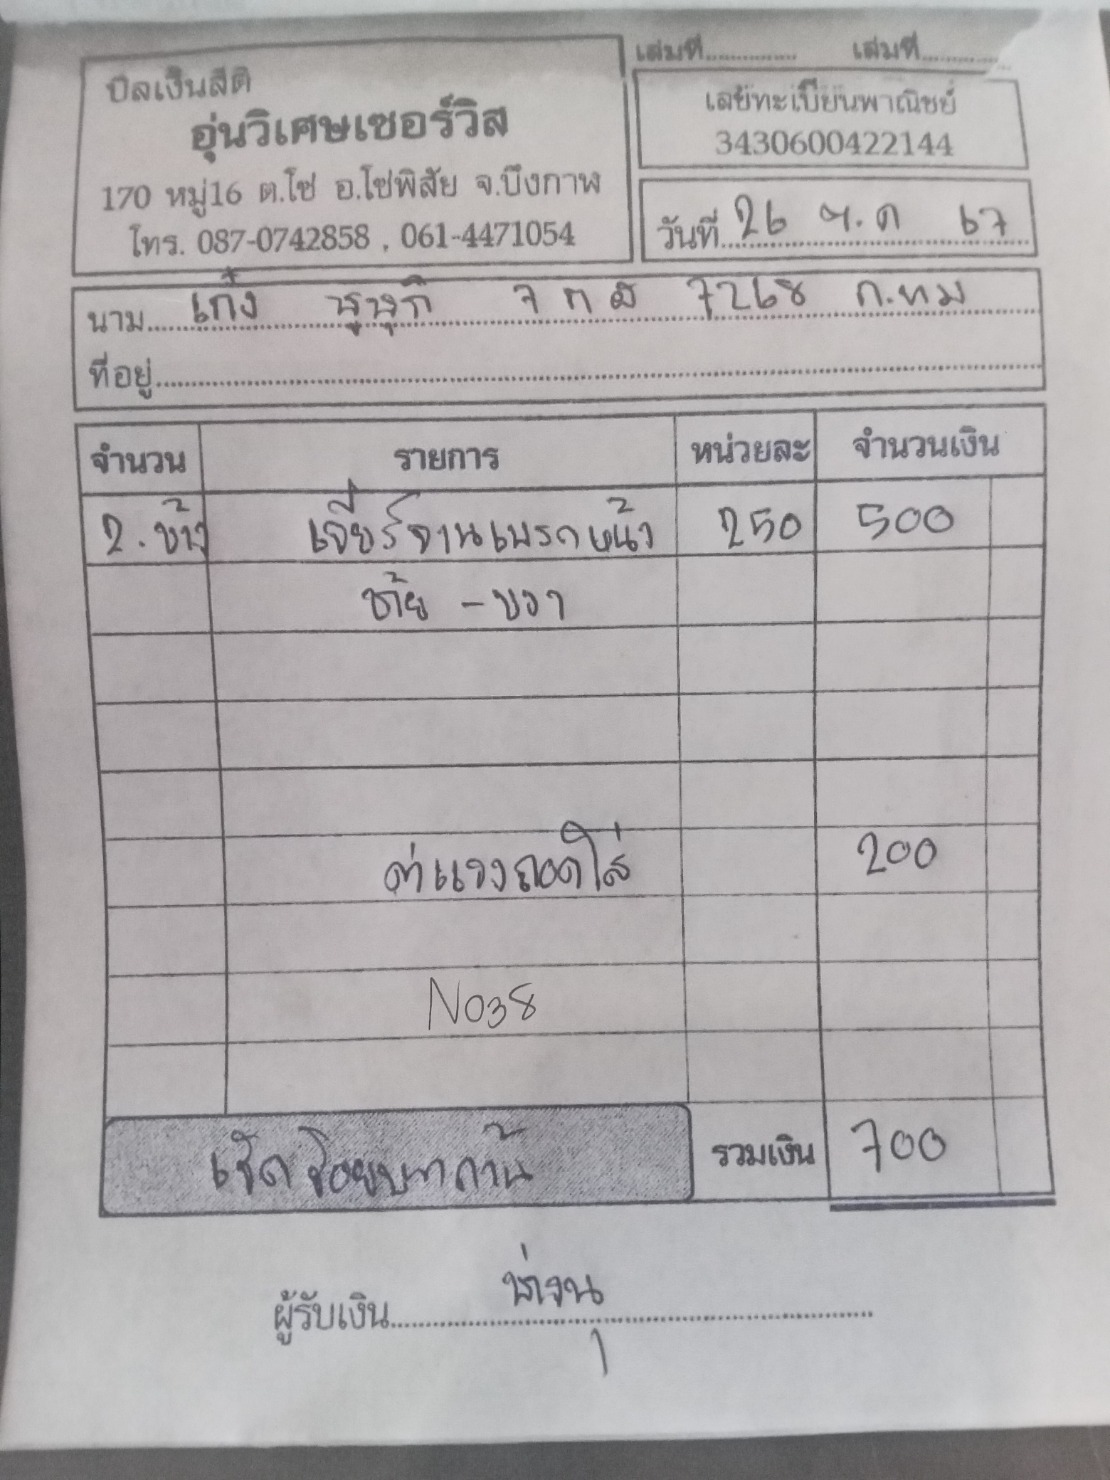 เล่มที่............... เล่มที่...............
บิลเงินสด
อุ่นวิเศษเซอร์วิส
170 หมู่16 ต.โซ่ อ.โซ่พิสัย จ.บึงกาฬ
โทร. 087-0742858 , 061-4471054
เลขทะเบียนพาณิชย์
3430600422144
วันที่ 26 พ.ค 67
นาม เก๋ง ซูซูกิ 7กส 7268 ก.ทม
ที่อยู่
จำนวน รายการ หน่วยละ จำนวนเงิน
2.ข้าง เจียร์จานเบรกหน้า 250 500
ซ้าย - ขวา
ค่าแรงถอดใส่ 200
No38
เซิด ร้อยบาทถ้วน รวมเงิน 700
ผู้รับเงิน